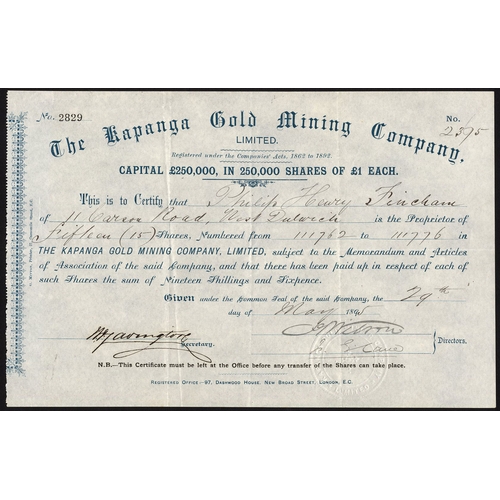 No. 2829
No. 2595
The Kapanga Gold Mining Company,
LIMITED.
Registered under the Companies' Acts, 1862 to 1892.
CAPITAL £250,000, IN 250,000 SHARES OF £1 EACH.
This is to Certify that Philip Henry Fincham
of 11 Carson Road, West Dulwich is the Proprietor of
Fifteen (15) Shares, Numbered from 111762 to 111776 in
THE KAPANGA GOLD MINING COMPANY, LIMITED, subject to the Memorandum and Articles
of Association of the said Company, and that there has been paid up in respect of each of
such Shares the sum of Nineteen Shillings and Sixpence.
Given under the Common Seal of the said Company, the 29th
day of May 1895
Secretary.
Directors.
N.B.—This Certificate must be left at the Office before any transfer of the Shares can take place.
REGISTERED OFFICE:—97, DASHWOOD HOUSE, NEW BROAD STREET, LONDON, E.C.